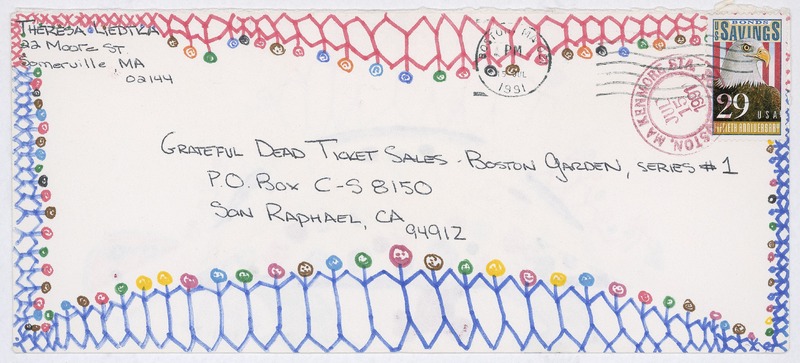 THERESA LIEDTKA
22 MOORE ST.
SOMERVILLE MA
02144
BOSTON, MA
PM
JUL
1991
KENMORE STA.
BOSTON, MA
JUL
15
1991
US BONDS
SAVINGS
29 USA
FIFTIETH ANNIVERSARY
GRATEFUL DEAD TICKET SALES - BOSTON GARDEN, SERIES #1
P.O. BOX C-S 8150
SAN RAPHAEL, CA
94912